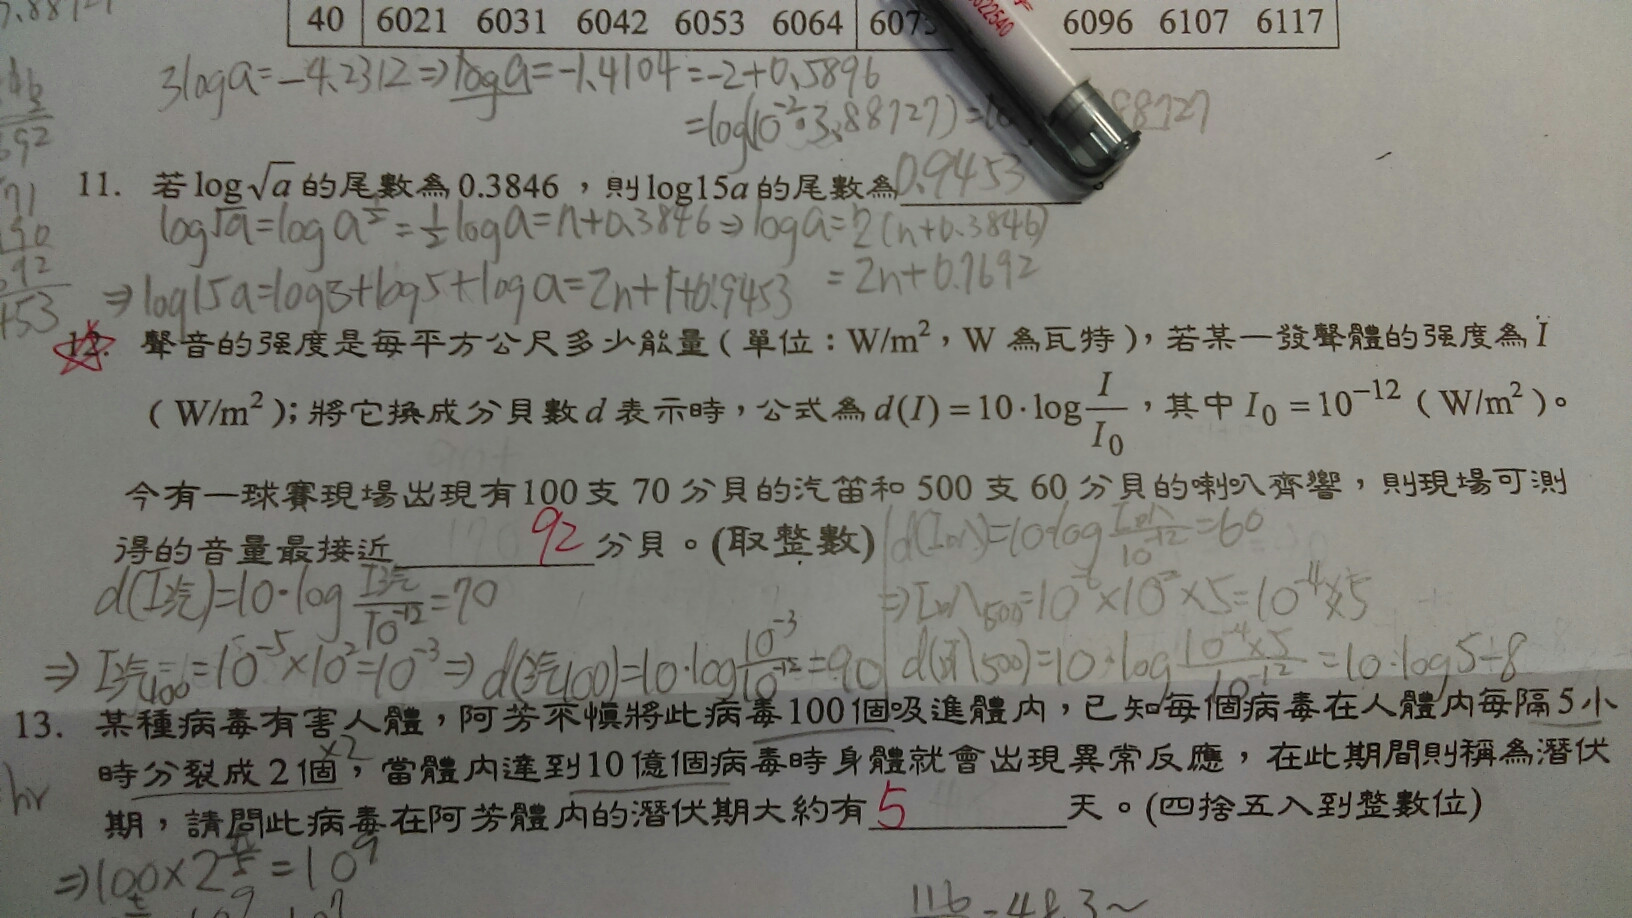 40 6021 6031 6042 6053 6064 6096 6107 6117
3loga=-4.2312⇒loga=-1.4104=-2+0.5896
=log(10⁻²·3.88727)
11. 若log√a的尾數為0.3846，則log15a的尾數為0.9453
log√a=loga^(1/2)=1/2 loga=n+0.3846⇒loga=2(n+0.3846)
=2n+0.7692
⇒log15a=log3+log5+loga=2n+1+0.9453
12. 聲音的强度是每平方公尺多少能量(單位：W/m²，W為瓦特)，若某一發聲體的强度為I
(W/m²)；將它換成分貝數d表示時，公式為d(I)=10·log I/I₀，其中I₀=10⁻¹²(W/m²)。
今有一球賽現場出現有100支70分貝的汽笛和500支60分貝的喇叭齊響，則現場可測
得的音量最接近 92 分貝。(取整數)
d(I汽)=10·log I汽/10⁻¹²=70
⇒I汽100=10⁻⁵×10²=10⁻³⇒d(汽100)=10·log 10⁻³/10⁻¹²=90
d(I叭)=10·log I叭/10⁻¹²=60
⇒I叭500=10⁻⁶×10²×5=10⁻⁴×5
d(叭500)=10·log 10⁻⁴×5/10⁻¹²=10·log5+8
13. 某種病毒有害人體，阿芳不慎將此病毒100個吸進體內，已知每個病毒在人體內每隔5小
時分裂成2個，當體內達到10億個病毒時身體就會出現異常反應，在此期間則稱為潛伏
×2
hr
期，請問此病毒在阿芳體內的潛伏期大約有 5 天。(四捨五入到整數位)
⇒100×2^(n/5)=10⁹
116